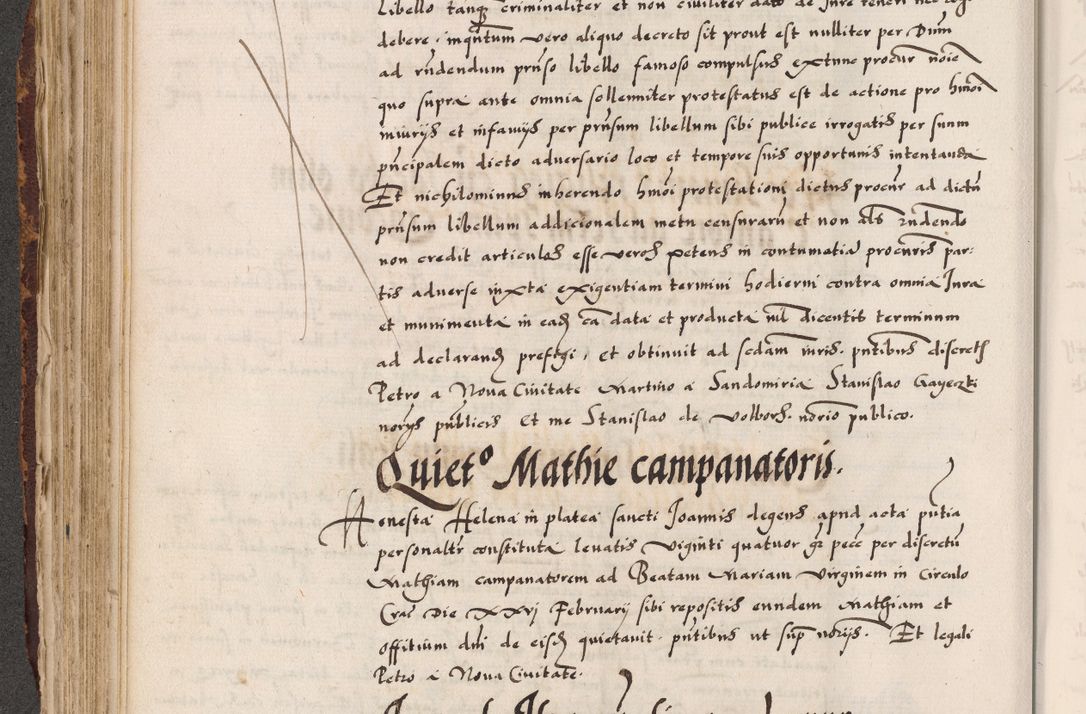 Libello tanq̃ criminaliter et non civiliter dato de Jure teneri nec
debere, inqñtum vero aliquo decreto sit prout est nulliter per Dnm
ad rñdendum pñso libello famoso compulsus extunc procur noie
quo supra ante omnia sollenniter protestatus est de actione pro hmoi
iniurijs et infamijs per pñsum libellum sibi publice irrogatis per suum
pñcipalem dicto adversario loco et tempore suis opportunis intentanda
Et nichilominus inherendo hmoi protestationi dictus procur ad dictũ
pñsum libellum addicionalem metu censurarũ et non als rñdendo
non credit articulos esse veros petens in contumatiã procuris par:
tis adverse iuxta exigentiam termini hodierni contra omnia Jura
et munimenta in eadẽ cã data et producta nil dicentis terminum
ad declarandũ prefigi, et obtinuit ad sedam iuris. pñtibus discretis
Petro a Nova Civitate Martino a Sandomiria Stanislao Gayeczki
norijs publicis Et me Stanislao de Volborz. nõrio publico.
Quietº Mathie campanatoris.
Honesta Helena in platea sancti Joannis degens apud acta pñtia
personaltr constituta levatis viginti quatuor gr pecc per discretũ
Mathiam campanatorem ad Beatam Mariam Virginem in Circulo
Crac Die XXVj Februarij sibi repositis eundem Mathiam et
offitium dñi de eisdẽ quietavit. pñtibus ut sup norijs. Et legali
Petro a Nova Civitate.